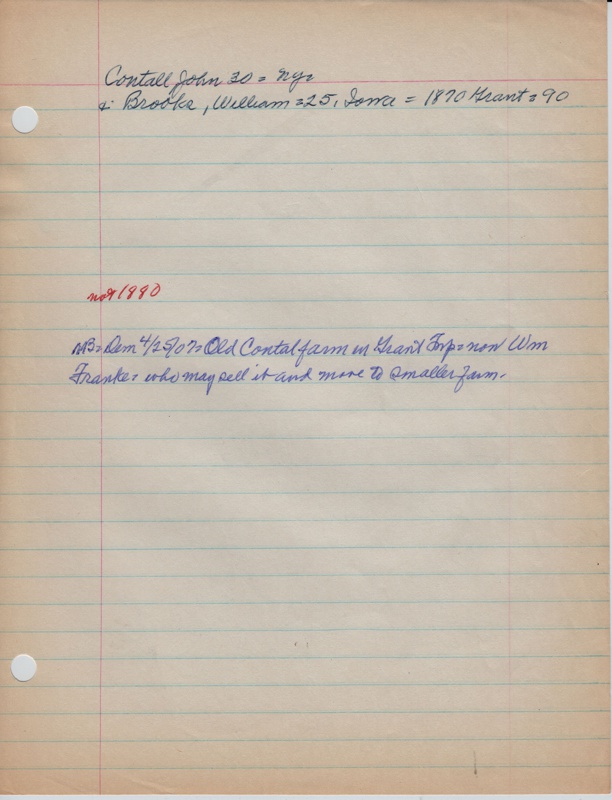 Contall John 30 = Ny=
& Brooks, William = 25, Iowa = 1870 Grant = 90
not 1880
MB = Dem 4/25/07 = Old Contal farm in Grant Twp = now Wm
Franke = who may sell it and move to smaller farm.